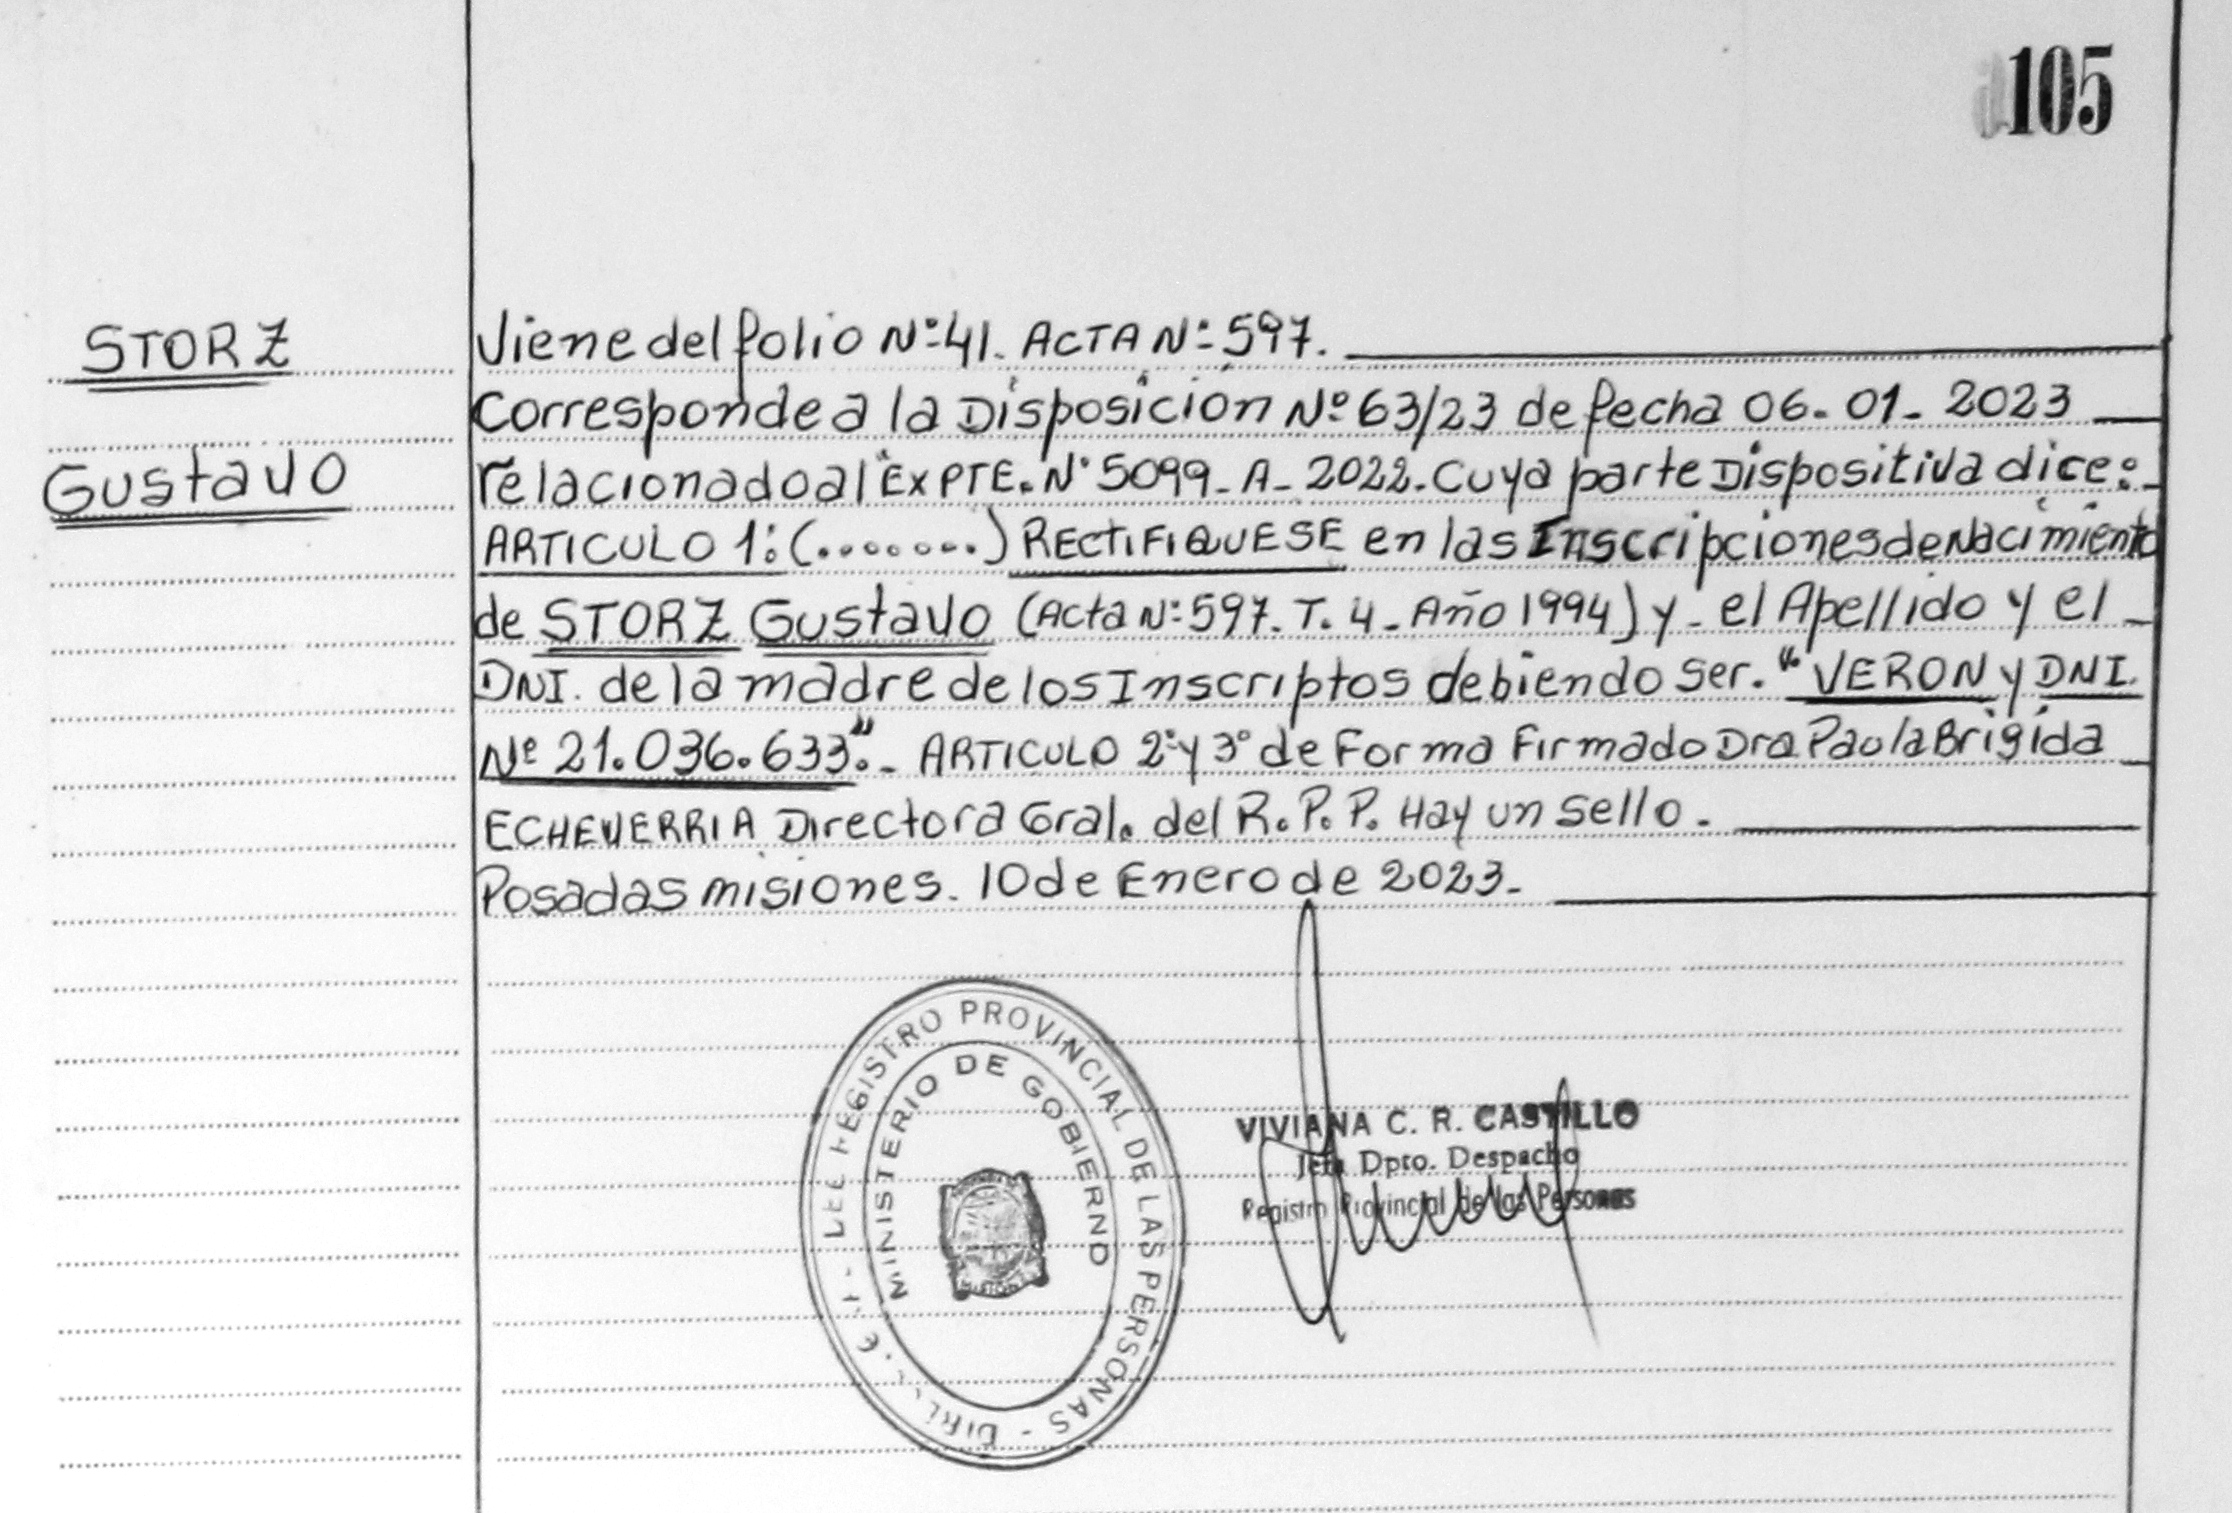 105
STORZ
Gustavo
Viene del folio Nº 41. ACTA Nº 597.
Corresponde a la Disposición Nº 63/23 de fecha 06-01-2023
relacionado al "EXPTE. Nº 5099-A-2022. Cuya parte Dispositiva dice:
ARTICULO 1: (........) RECTIFIQUESE en las Inscripciones de Nacimiento
de STORZ Gustavo (Acta Nº 597. T. 4 - Año 1994) y - el Apellido y el -
DNI. de la madre de los Inscriptos debiendo ser. "VERON y DNI.
Nº 21.036.633".- ARTICULO 2º y 3º de Forma Firmado Dra Paola Brigida
ECHEVERRIA Directora Gral. del R.P.P. Hay un sello.
Posadas misiones. 10 de Enero de 2023.-
REGISTRO PROVINCIAL DE LAS PERSONAS
MINISTERIO DE GOBIERNO
VIVIANA C. R. CASTILLO
Jefa Dpto. Despacho
Registro Provincial de las Personas